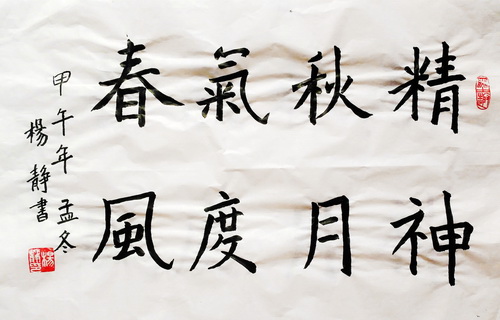 精神
秋月
氣度
春風
甲午年孟冬
楊靜書